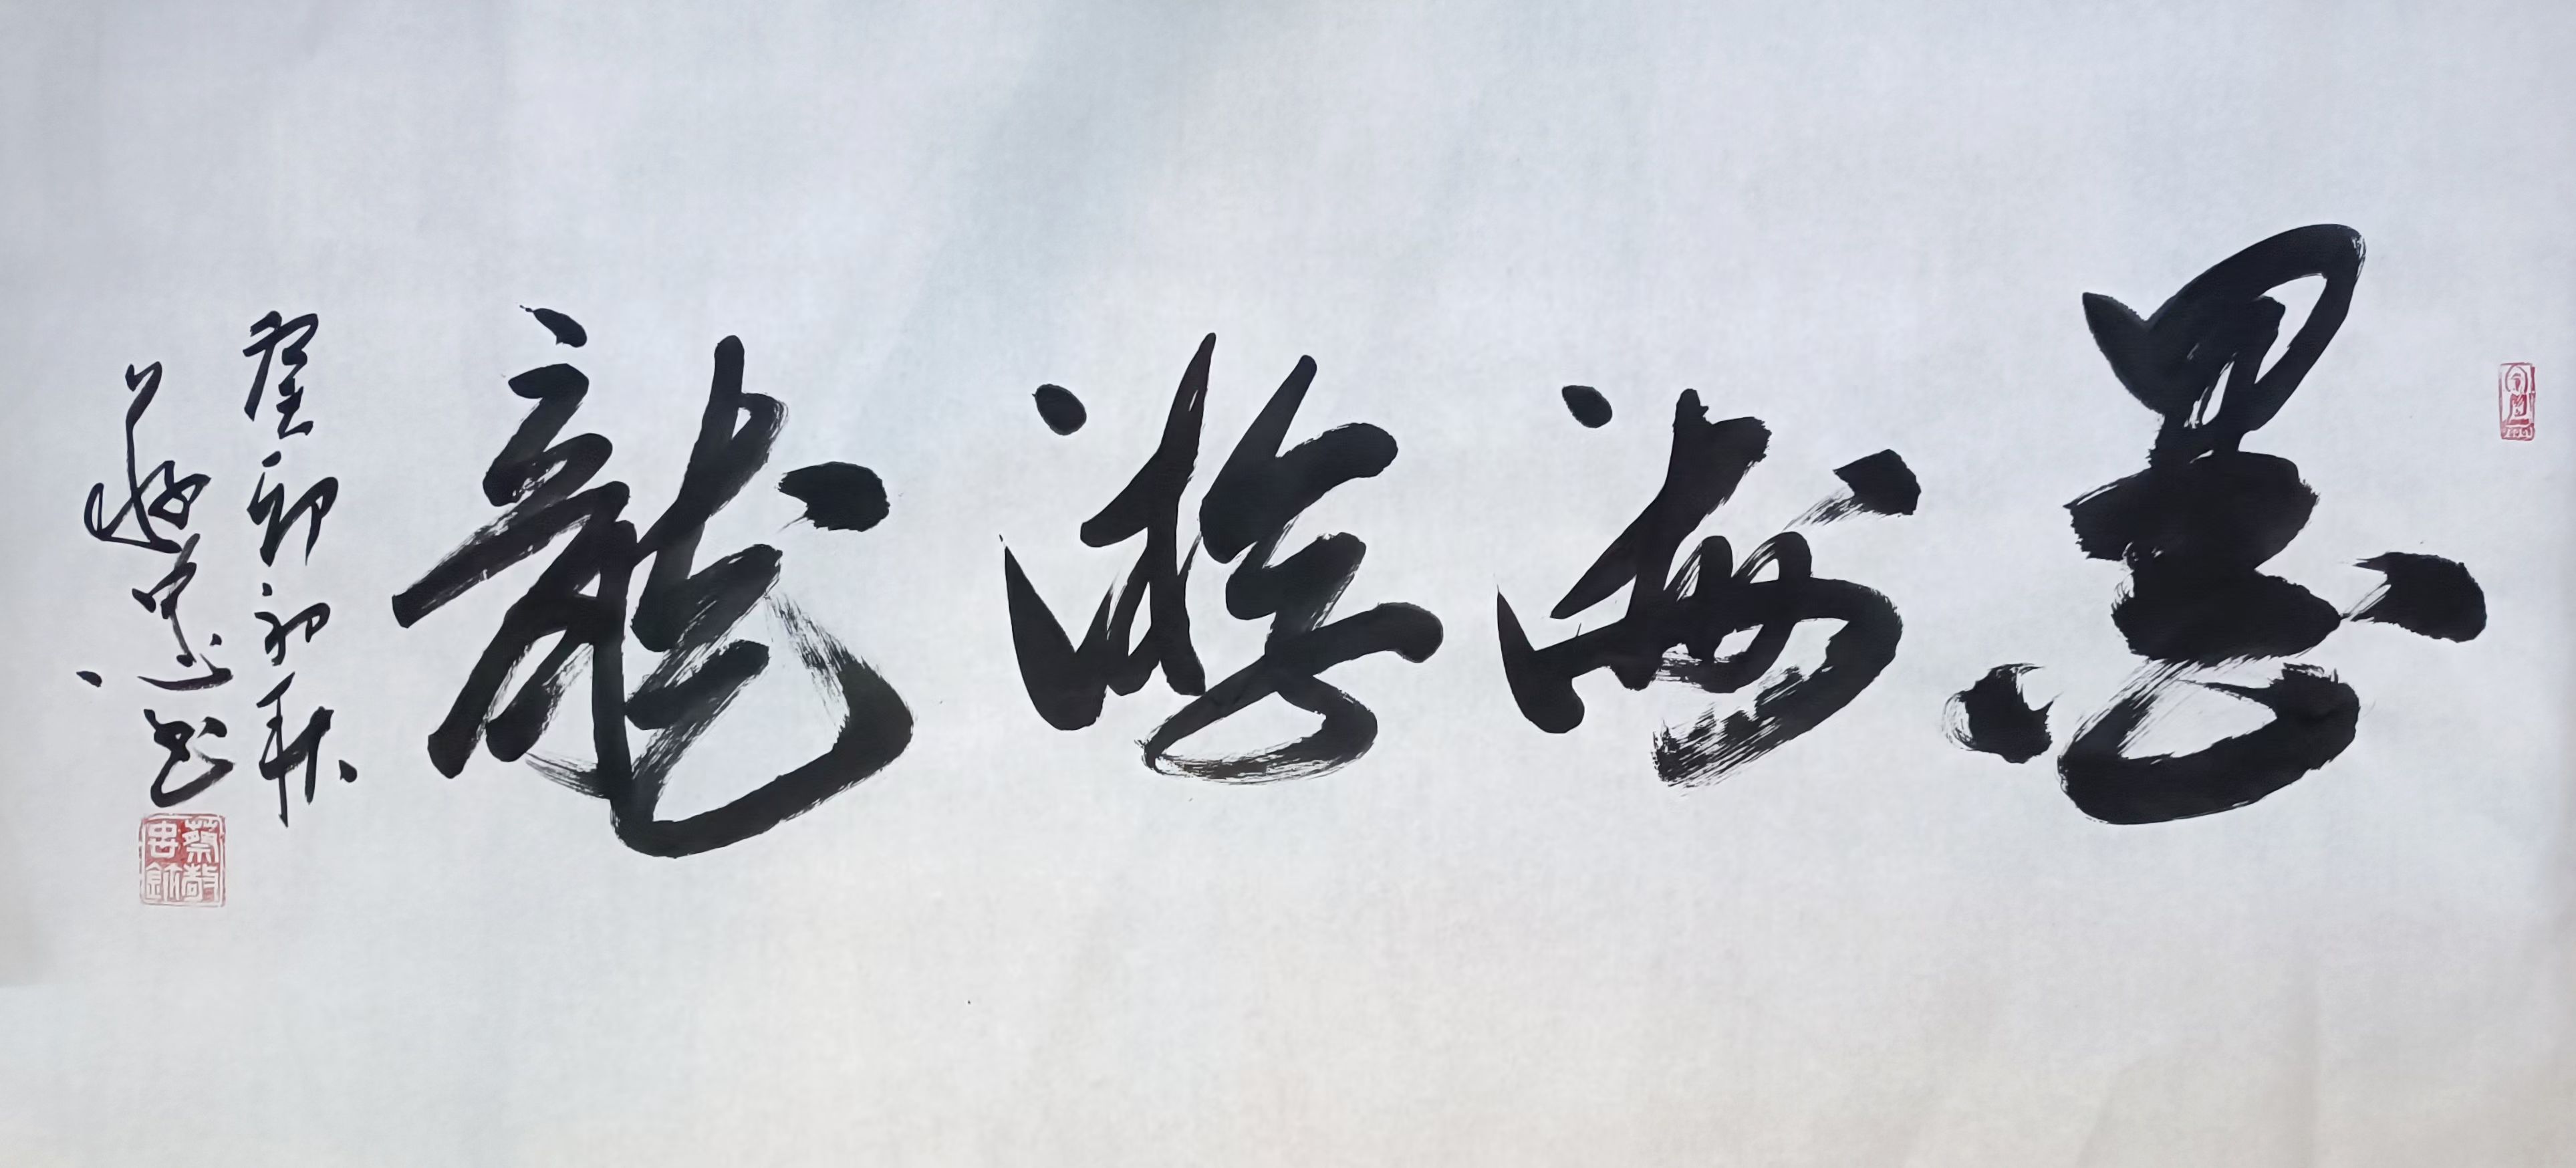 墨海游龍
癸卯初秋
蔡忠書